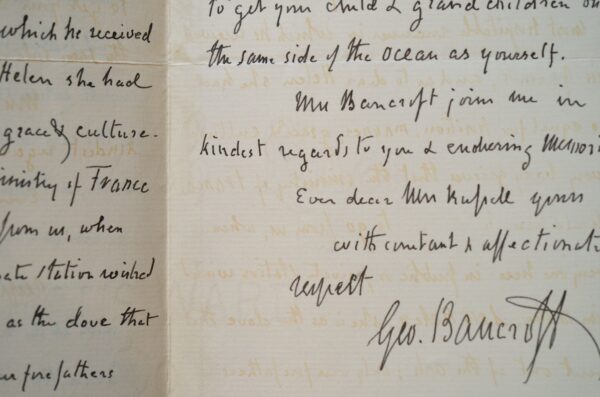 which he received
Helen she had
grace & culture.
ministry of France
from us, when
ate station wished
as the dove that
ur forefathers
to get your child & grand children on
the same side of the ocean as yourself.
Mrs Bancroft joins me in
kindest regards to you & endearing
Ever dear Mrs yours
with constant & affectionate
respect
Geo. Bancroft